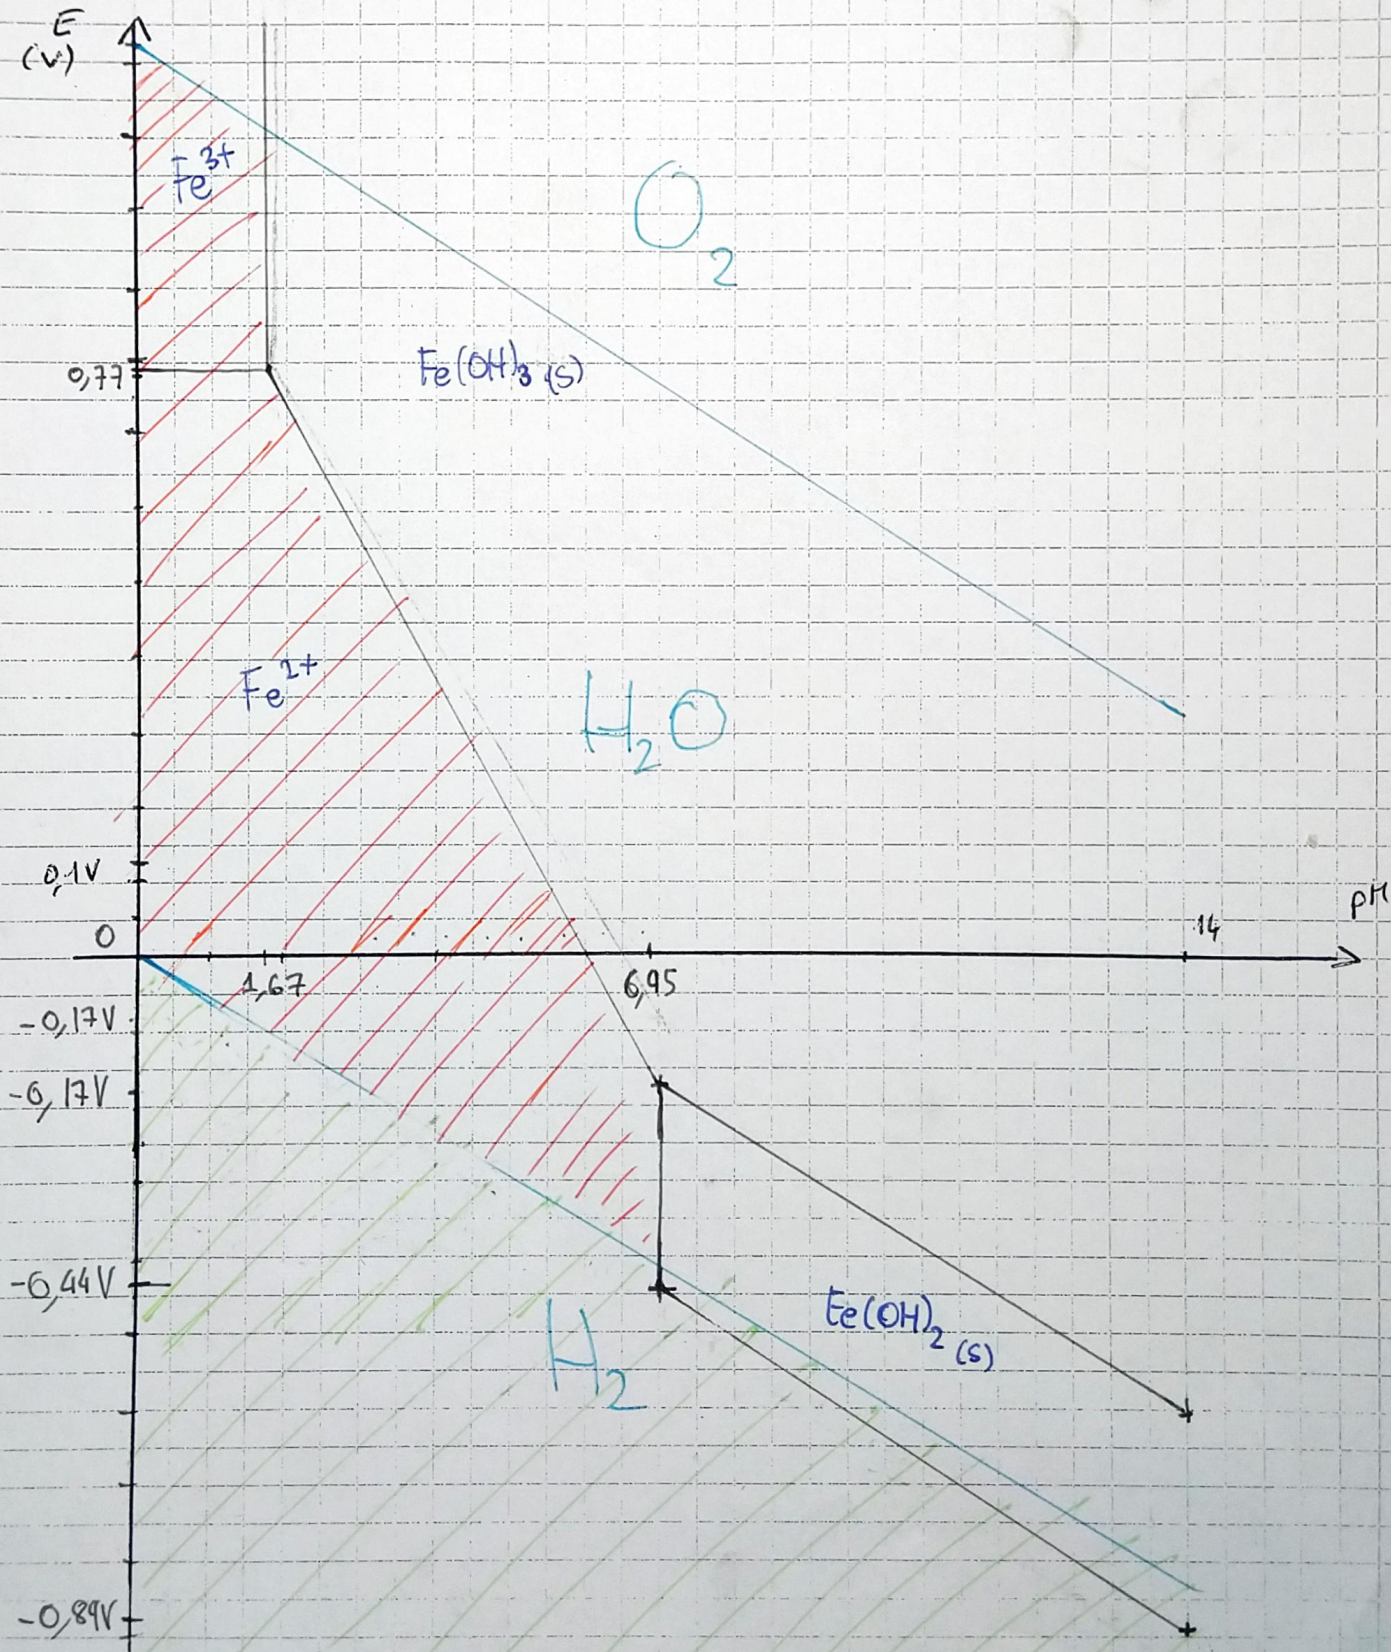 E
(V)
Fe³⁺
O₂
0,77
Fe(OH)₃ (s)
Fe²⁺
H₂O
0,1V
pH
0
14
1,67
6,95
-0,17V
-0,17V
-0,44V
Fe(OH)₂ (s)
H₂
-0,89V